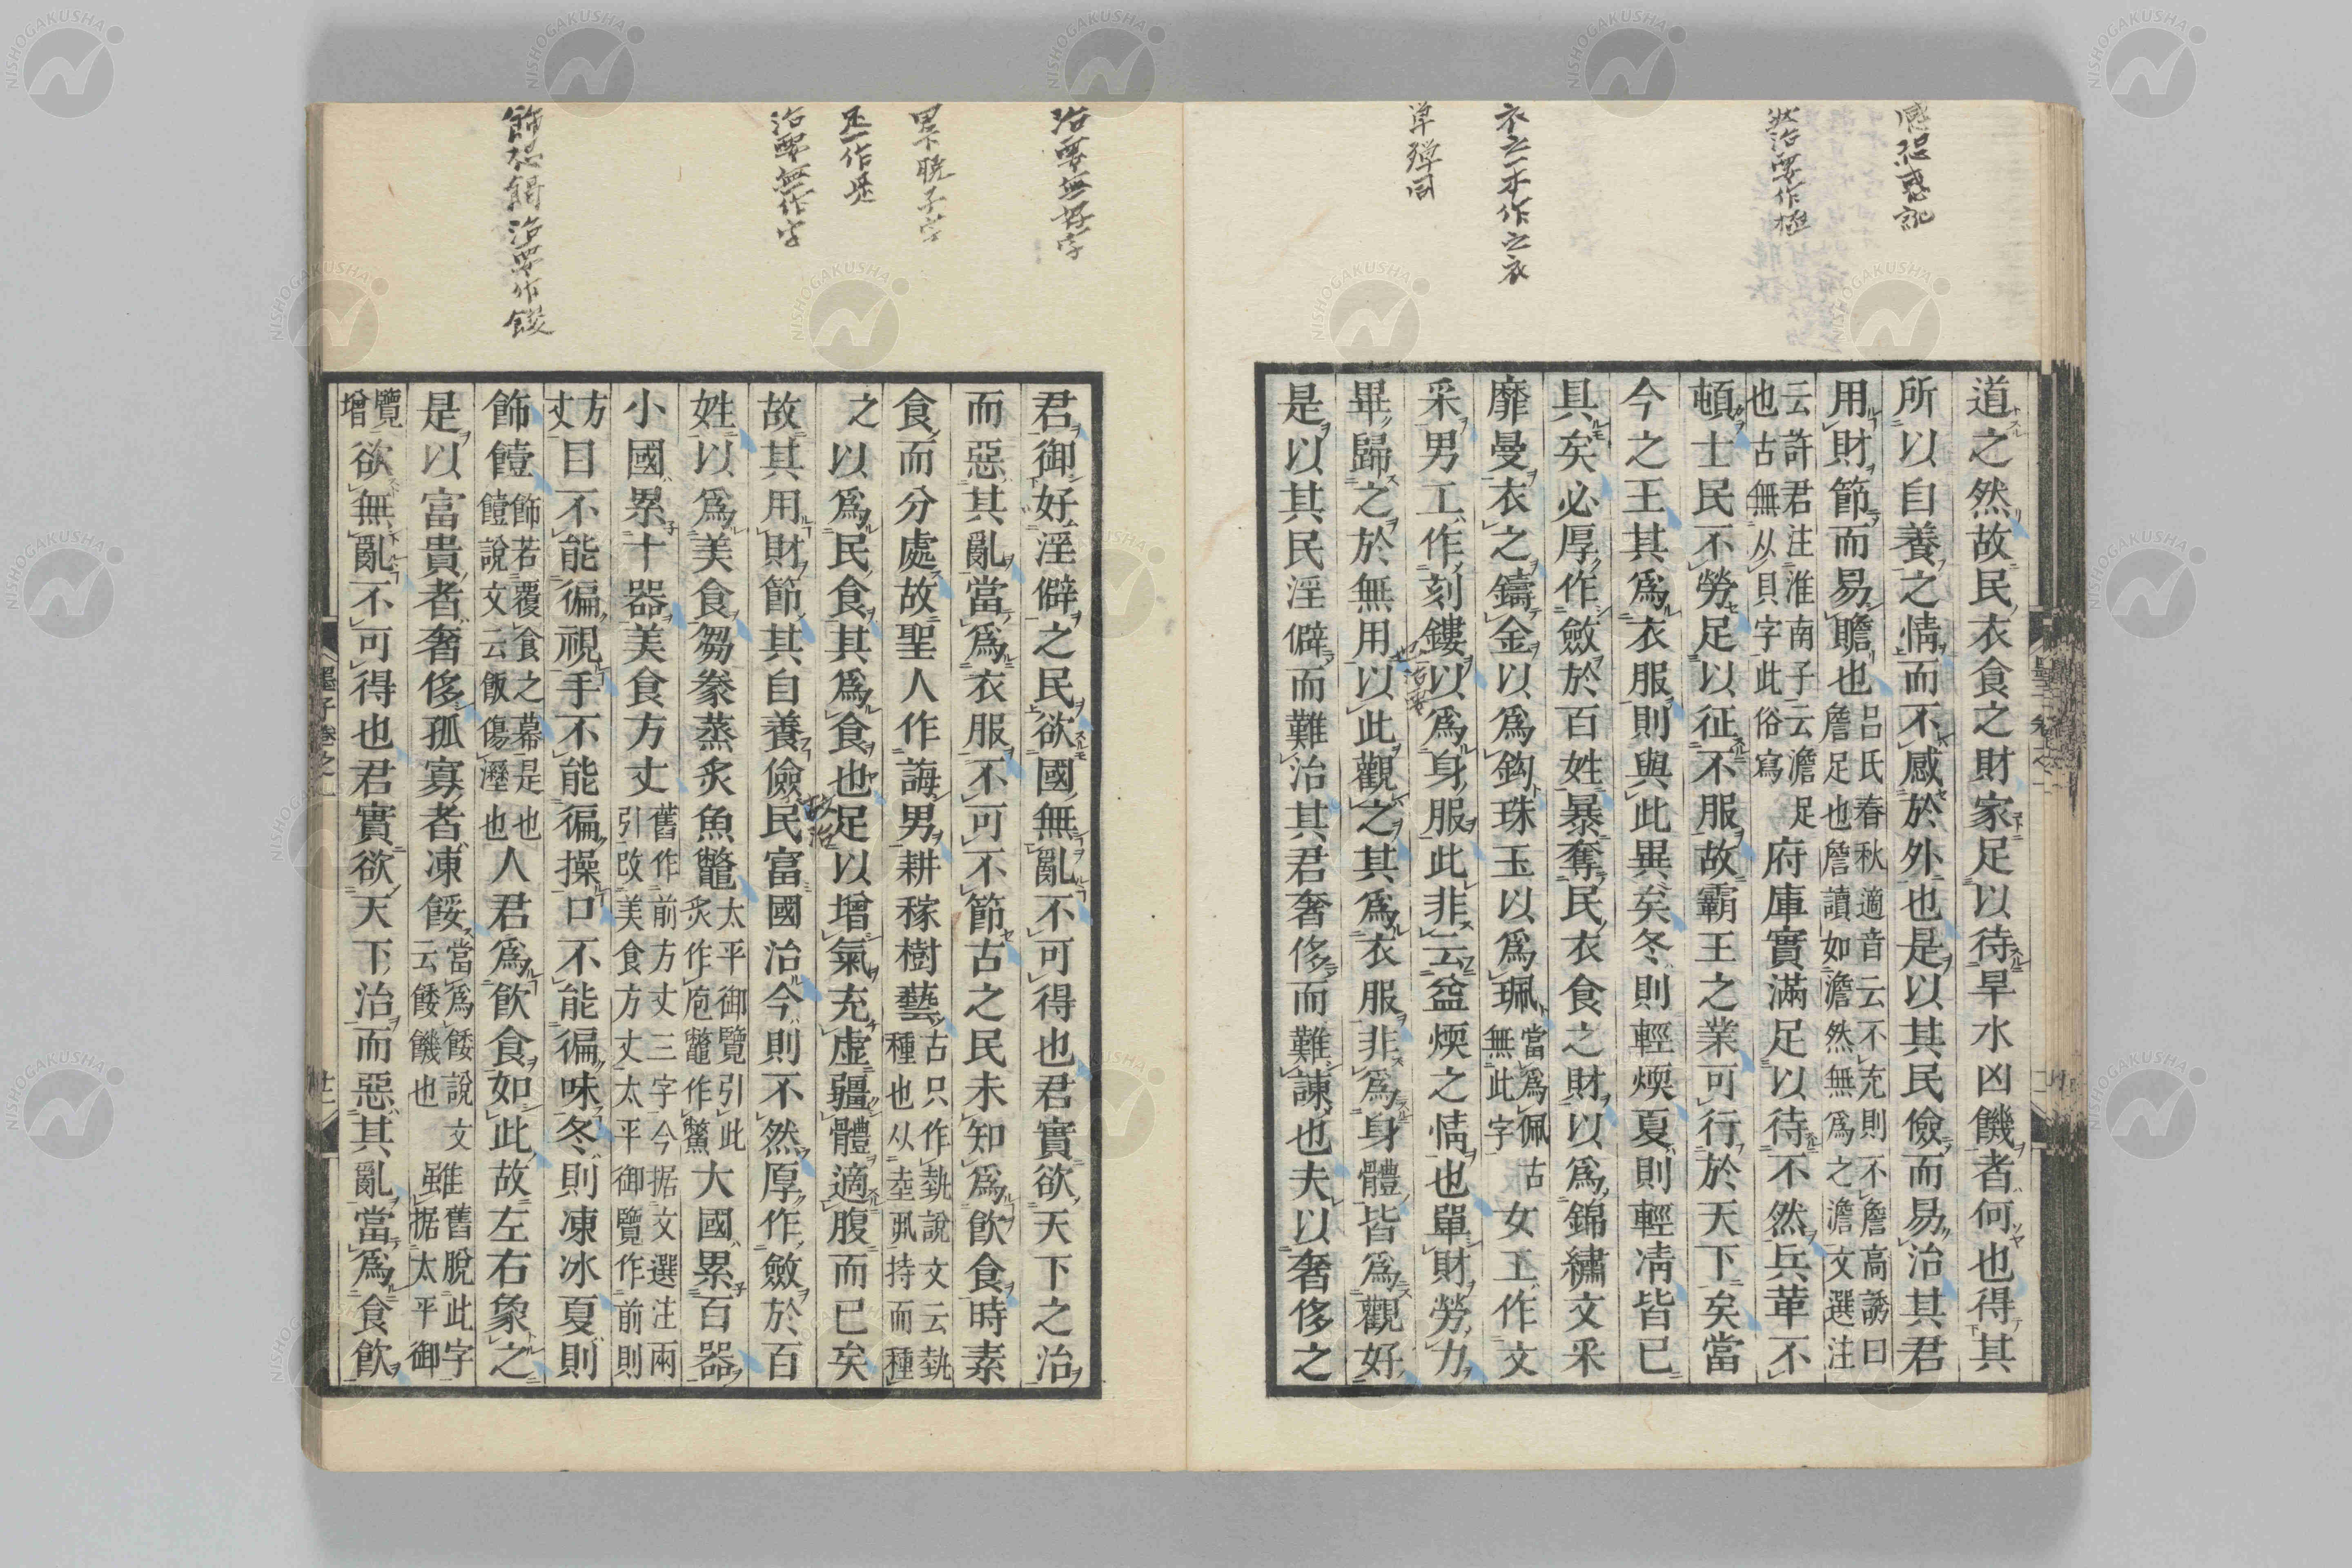 感恐惑誤
然治要作極
衣之一本作之衣
單殫同
道之然故民衣食之財家足以待旱水凶饑者何也得其
所以自養之情而不感於外也是以其民儉而易治其君
用財節而易贍也呂氏春秋適音云不充則不詹高誘曰詹足也詹讀如澹然無爲之澹文選注
云許君注淮南子云澹足也古無从貝字此俗寫府庫實滿足以待不然兵革不
頓士民不勞足以征不服故霸王之業可行於天下矣當
今之王其爲衣服則與此異矣冬則輕煗夏則輕凊皆已
具矣必厚作斂於百姓暴奪民衣食之財以爲錦繡文采
靡曼衣之鑄金以爲鈎珠玉以爲珮當爲佩古無此字女工作文
采男工作刻鏤以爲身服此非云益煗之情也單財勞力
畢歸之於無用以此觀之其爲衣服非爲身體皆爲觀好
是以其民淫僻而難治其君奢侈而難諫也夫以奢侈之
治要無好字
足一作是
治要無作字
飾恐餲治要作餕
君御好淫僻之民欲國無亂不可得也君實欲天下之治
而惡其亂當爲衣服不可不節古之民未知爲飲食時素
食而分處故聖人作誨男耕稼樹藝古只作埶說文云埶種也从坴丮持而種
之以爲民食其爲食也足以增氣充虛疆體適腹而已矣
故其用財節其自養儉民富國治今則不然厚作斂於百
姓以爲美食芻豢蒸炙魚鼈太平御覽引此炙作庖鼈作鱉大國累百器
小國累十器美食方丈舊作前方丈三字今据文選注兩引改美食方丈太平御覽作前則
方丈目不能徧視手不能徧操口不能徧味冬則凍冰夏則
飾饐飾若覆食之幕是也饐說文云飯傷溼也人君爲飲食如此故左右象之
是以富貴者奢侈孤寡者凍餒當爲餧說文云餧饑也雖舊脫此字据太平御
覽增欲無亂不可得也君實欲天下治而惡其亂當爲食飲
墨子卷之一